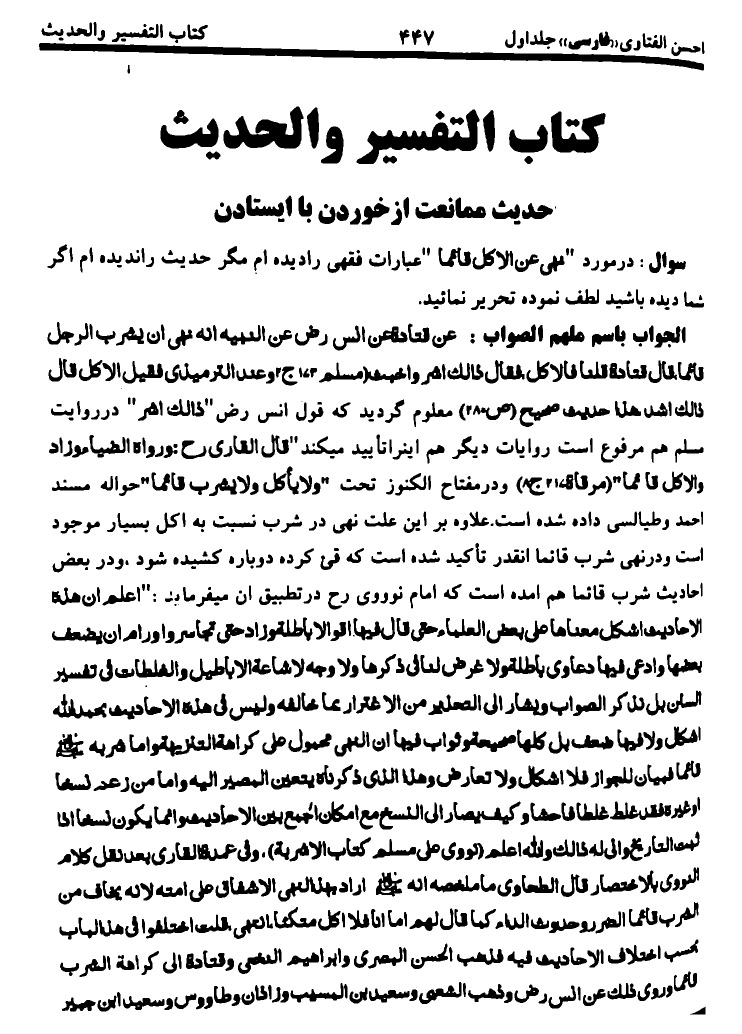 احسن الفتاوی «فارسی» جلد اول ۴۴۷ کتاب التفسیر والحدیث
کتاب التفسیر والحدیث
حدیث ممانعت از خوردن با ایستادن
سوال : درمورد "نهی عن الاکل قائما" عبارات فقهی رادیده ام مگر حدیث راندیده ام اگر
شما دیده باشید لطف نموده تحریر نمائید.
الجواب باسم ملهم الصواب : عن قتادة عن انس رض عن النبیه انه نهی ان یشرب الرجل
قائما قال قتادة قلنا فالاکل فقال ذالك اشر واخبث (مسلم ۱۷۳ ج۲ وعند الترمیذی فقیل الاکل قال
ذالك اشد هذا حدیث صحیح (ص۲۸۰) معلوم گردید که قول انس رض "ذالك اشر" درروایت
مسلم هم مرفوع است روایات دیگر هم اینراتأیید میکند "قال القاری رح : ورواه الضیاء وزاد
والاکل قائما" (مرقاة ۲۱۷ ج۸) ودرمفتاح الکنوز تحت "ولایأکل ولایشرب قائما" حواله مسند
احمد وطیالسی داده شده است.علاوه بر این علت نهی در شرب نسبت به اکل بسیار موجود
است ودرنهی شرب قائما انقدر تأکید شده است که قئ کرده دوباره کشیده شود ،ودر بعض
احادیث شرب قائما هم امده است که امام نوووی رح درتطبیق ان میفرماید :"اعلم ان هذه
الاحادیث اشکل معناها علی بعض العلماء حتی قال فیها اقوالا باطلة وزاد حتی تجاسر واورام ان یضعف
بعضها وادعی فیها دعاوی باطلة ولا غرض لنا فی ذکرها ولا وجه لاشاعة الاباطیل والغلطات فی تفسیر
السنن بل نذکر الصواب ویشار الی التحذیر من الاغترار بما خالفه ولیس فی هذه الاحادیث بحمدالله
اشکال ولافیها ضعف بل کلها صحیحة وثواب فیها ان النهی محمول علی کراهة التنزیهة واما شربه ﷺ
قائما فبیان للجواز فلا اشکال ولا تعارض وهذا الذی ذکرناه یتعین المصیر الیه واما من زعد نسخا
اوغیره فقد غلط غلطا فاحشا وکیف یصار الی النسخ مع امکان الجمع بین الاحادیث وانما یکون نسخا اذا
ثبت التاریخ وانی له ذالك والله اعلم (نووی علی مسلم کتاب الاشربة)، وفی عمدة القاری بعد نقل کلام
النووی بالاختصار قال الطحاوی ما ملخصه انه ﷺ اراد بهذا النهی الاشفاق علی امته لانه یخاف من
الشرب قائما الضرر وحدوث الداء کما قال لهم اما انا فلا اکل متکئا،انتهی،قلت اختلفوا فی هذا الباب
بحسب اختلاف الاحادیث فیه فذهب الحسن البصری وابراهیم النخعی وقتادة الی کراهة الشرب
قائما وروی ذلك عن انس رض وذهب الشعبی وسعید ابن المسیب وزاذان وطاووس وسعید ابن جبیر